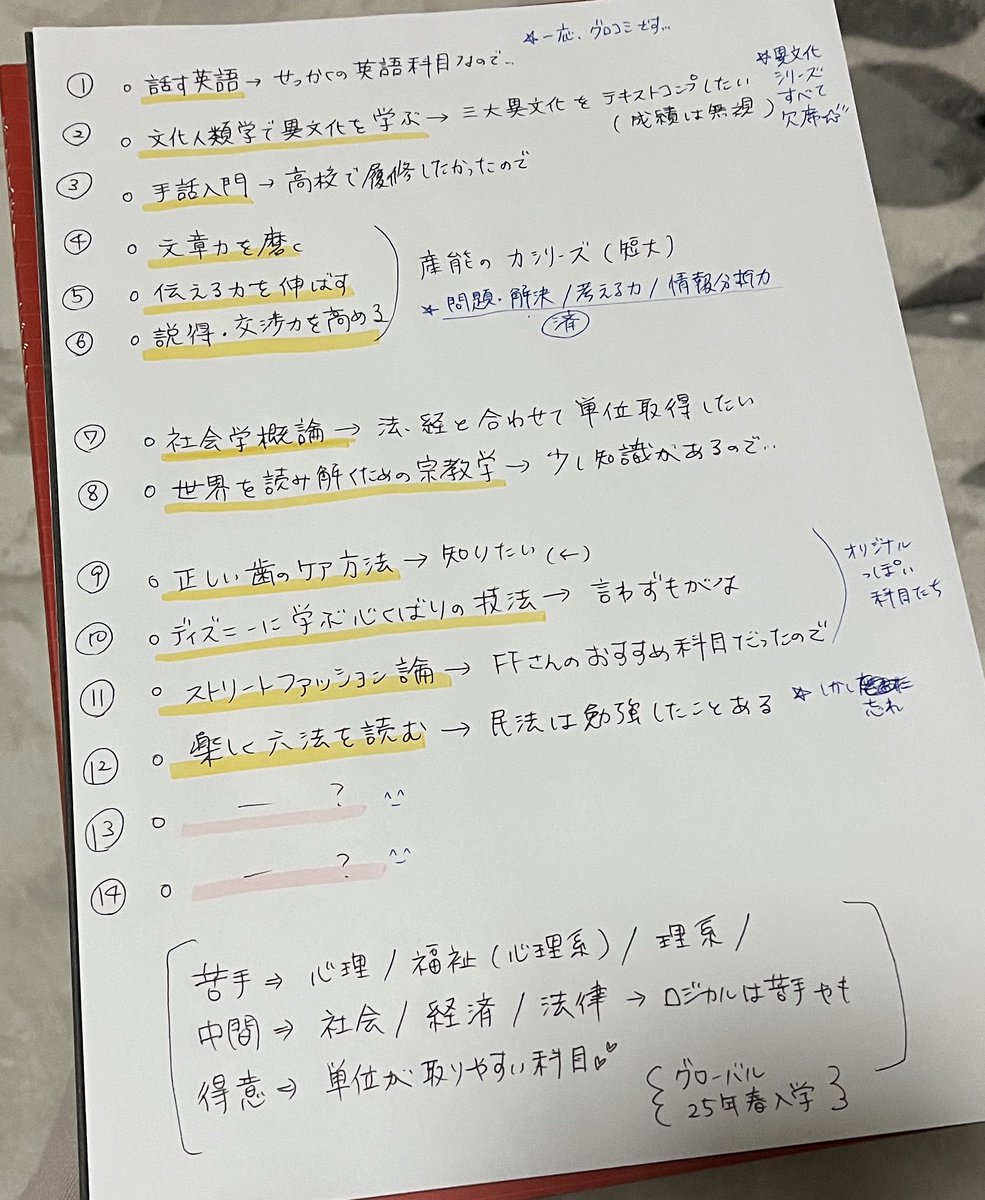 ☆一応、グロコミです…
① ○ 話す英語→せっかくの英語科目なので…
② ○ 文化人類学で異文化を学ぶ→三大異文化をテキストコンプしたい
(成績は無視)
☆異文化
シリーズ
すべて
欠席
③ ○ 手話入門→高校で履修したかったので
④ ○ 文章力を磨く
⑤ ○ 伝える力を伸ばす
⑥ ○ 説得・交渉力を高める
産能の力シリーズ(短大)
☆問題・解決/考える力/情報分析力
済
⑦ ○ 社会学概論→法、経と合わせて単位取得したい
⑧ ○ 世界を読み解くための宗教学→少し知識があるので…
⑨ ○ 正しい歯のケア方法→知りたい(←)
⑩ ○ ディズニーに学ぶ心くばりの技法→言わずもがな
⑪ ○ ストリートファッション論→FFさんのおすすめ科目だったので
オリジナル
っぽい
科目たち
⑫ ○ 楽しく六法を読む→民法は勉強したことある ☆しかし
忘れ
⑬ ○ ― ? ^^
⑭ ○ ― ? ^^
苦手⇒心理/福祉(心理系)/理系/
中間⇒社会/経済/法律→ロジカルは苦手やも
得意⇒単位が取りやすい科目♡♡
{グローバル
25年春入学}